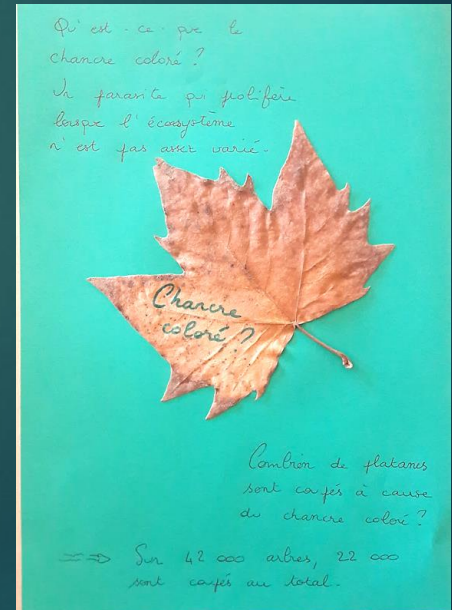 Qu'est-ce-que le
chancre coloré ?
Un parasite qui polifère
lorsque l'écosystème
n'est pas assez varié.
Chancre
coloré ?
Combien de platanes
sont coupés à cause
du chancre coloré ?
=> Sur 42 000 arbres, 22 000
sont coupés au total.